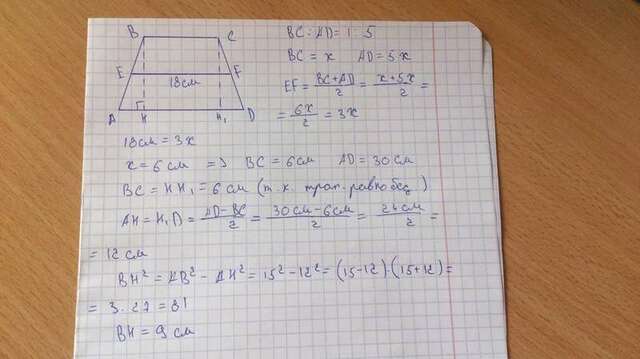 B C
E F
18см
A H H₁ D
BC : AD = 1 : 5
BC = x AD = 5x
EF = (BC+AD)/2 = (x+5x)/2 =
= 6x/2 = 3x
18см = 3x
x = 6 см => BC = 6см AD = 30см
BC = HH₁ = 6 см (т.к. трап. равнобед)
AH = H₁D = (AD-BC)/2 = (30см-6см)/2 = 24см/2 =
= 12 см
BH² = AB² - AH² = 15² - 12² = (15-12)·(15+12) =
= 3·27 = 81
BH = 9 см